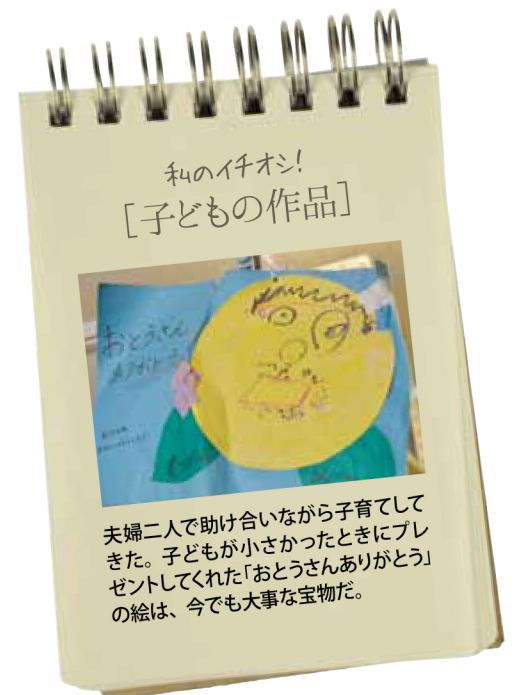 私のイチオシ!
[子どもの作品]
おとうさん
ありがとう
夫婦二人で助け合いながら子育てして
きた。子どもが小さかったときにプレ
ゼントしてくれた「おとうさんありがとう」
の絵は、今でも大事な宝物だ。